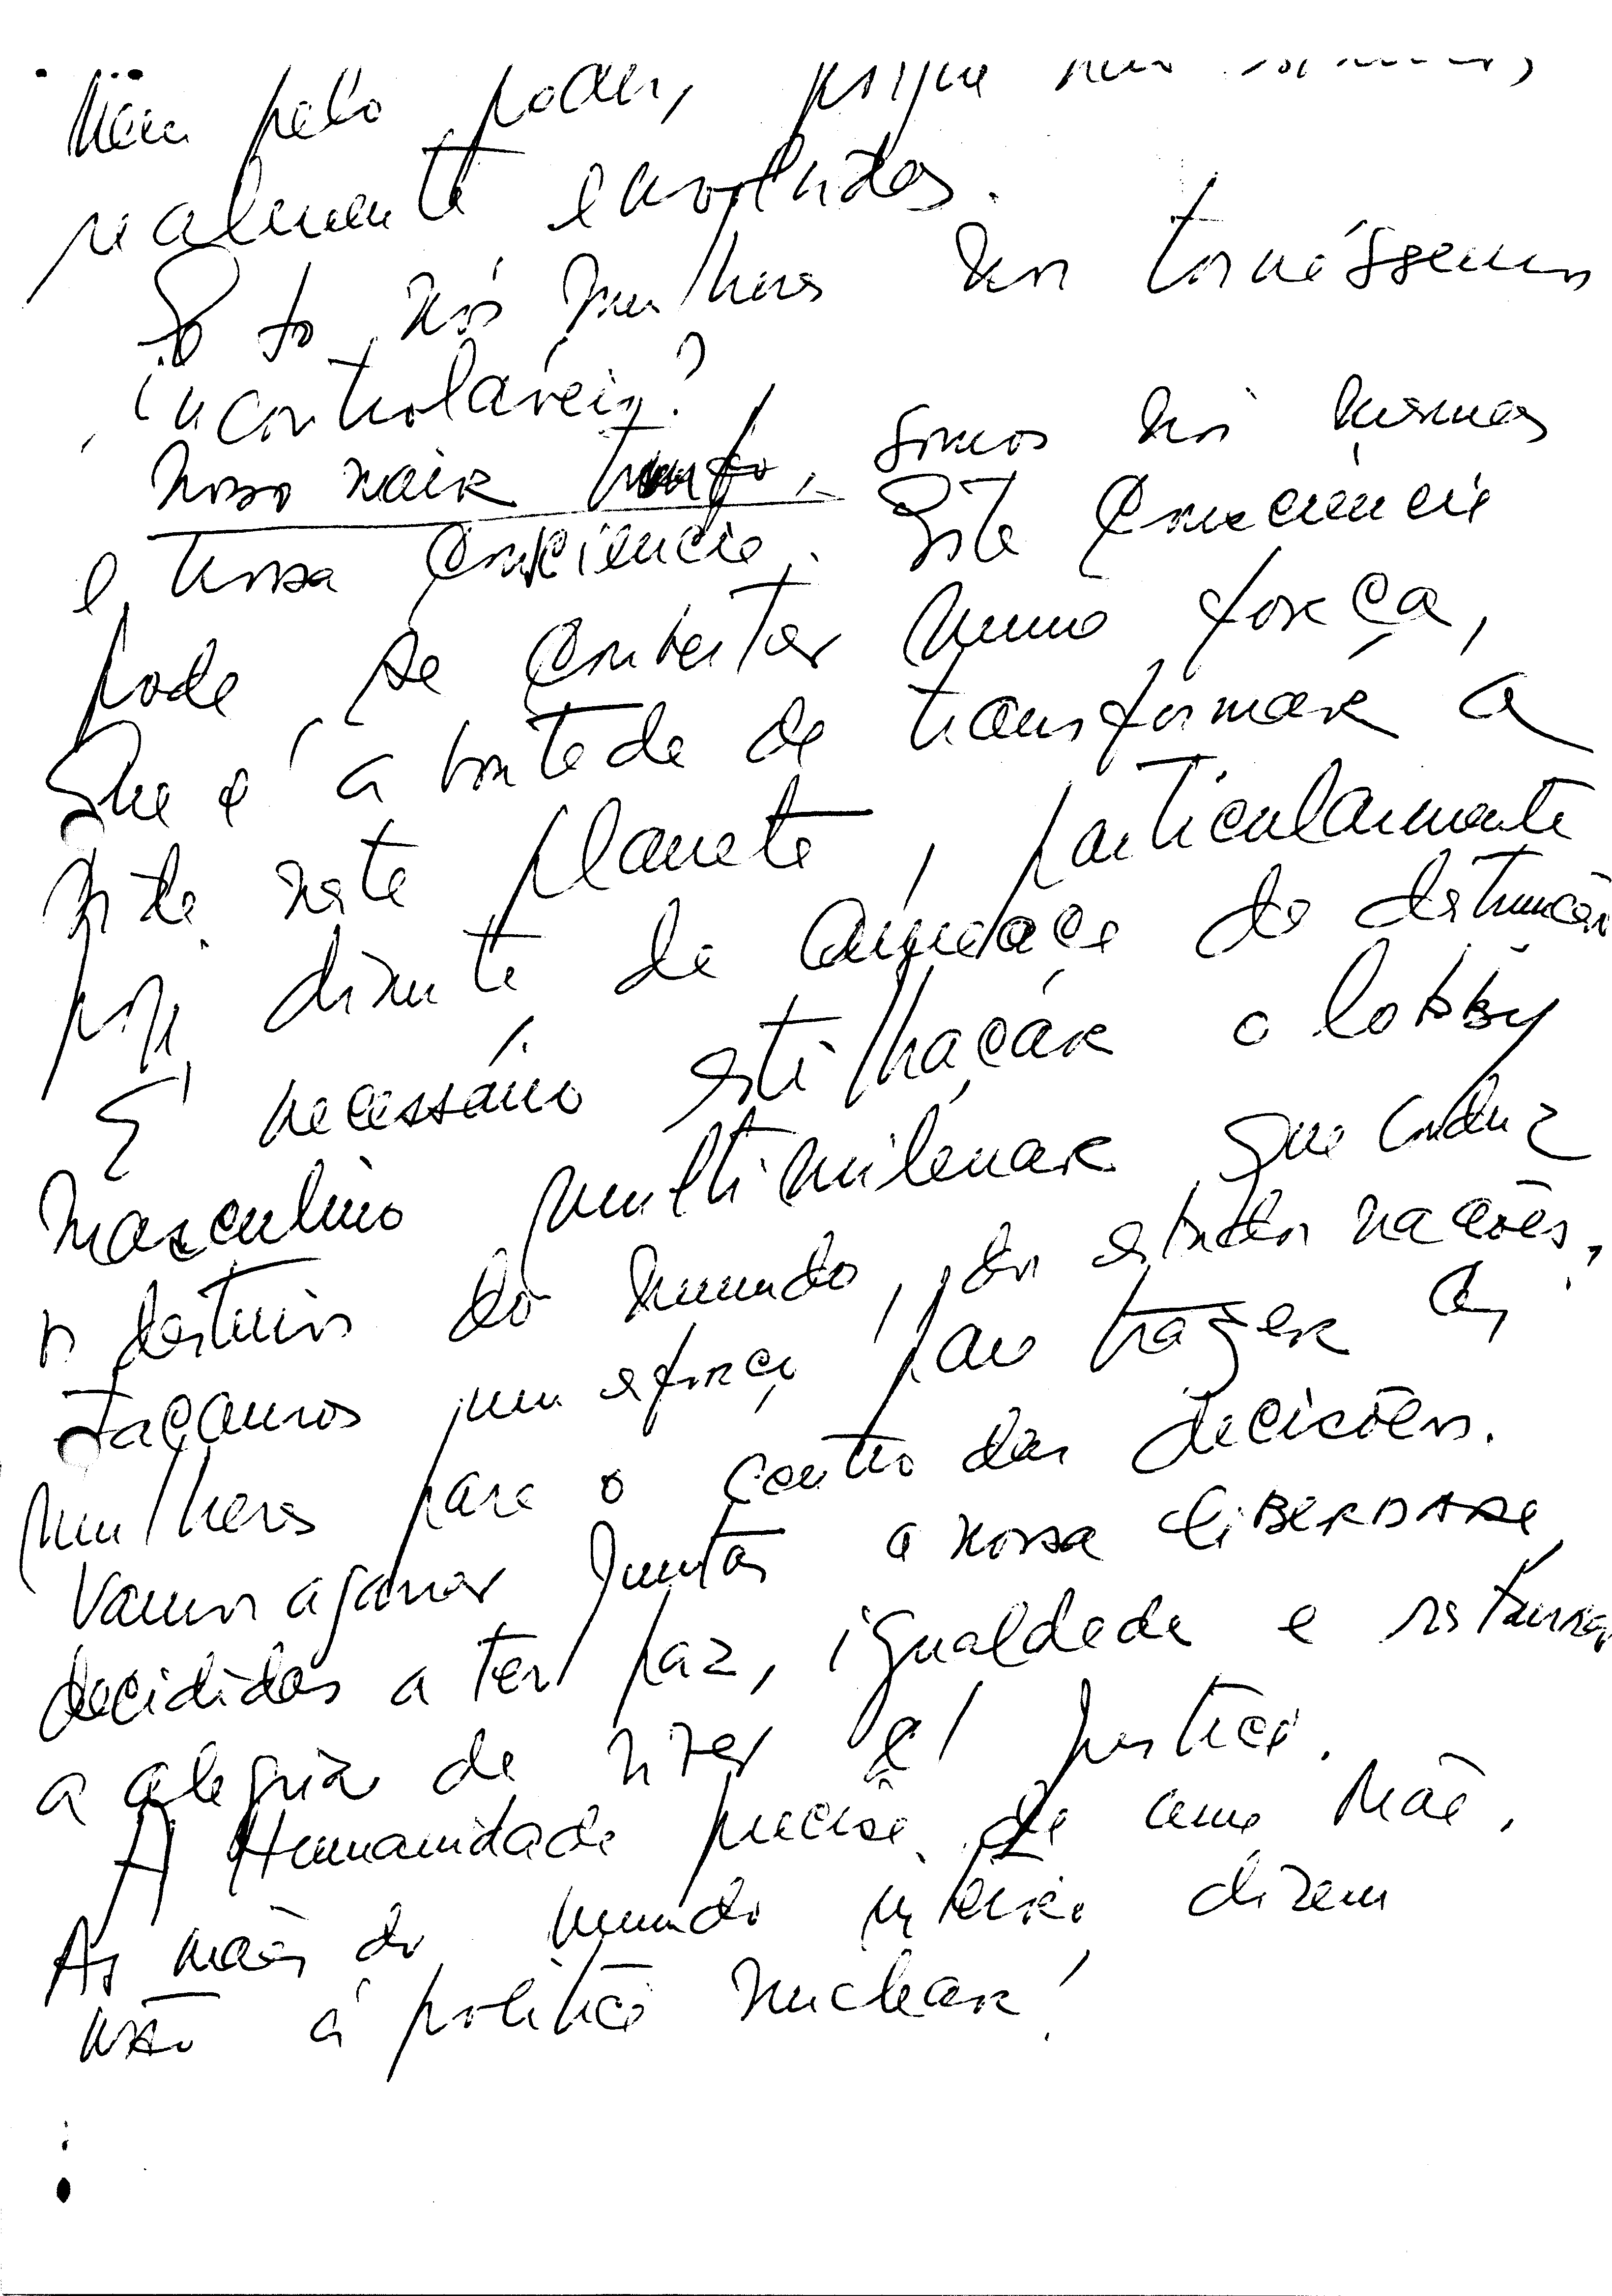 Nem pelo poder, porque não somos,
realmente envolvidas.
E se nós mulheres nos tornássemos
incontroláveis?
Nosso maior trunfo, somos nós mesmas
e nossa consciência. Esta consciência
pode se converter numa força,
que é a vontade de transformar a
vida neste planeta, particularmente
hoje diante da ameaça da destruição
É necessário estilhaçar o lobby
masculino multimilenar que conduz
os destinos do mundo, dos estados nações,
Façamos um esforço para trazer as
mulheres para o centro das decisões.
Vamos agarrar juntas a nossa LIBERDADE
decididas a ter paz, igualdade e restaurar
a alegria de viver e justiça.
A Humanidade precisa de uma Mãe.
As mães do mundo inteiro dizem
não à política nuclear!